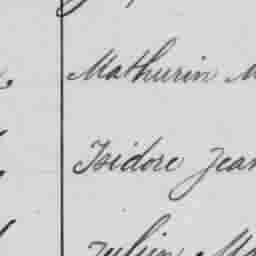 Mathurin M
Isidore Jean
Julien Ma